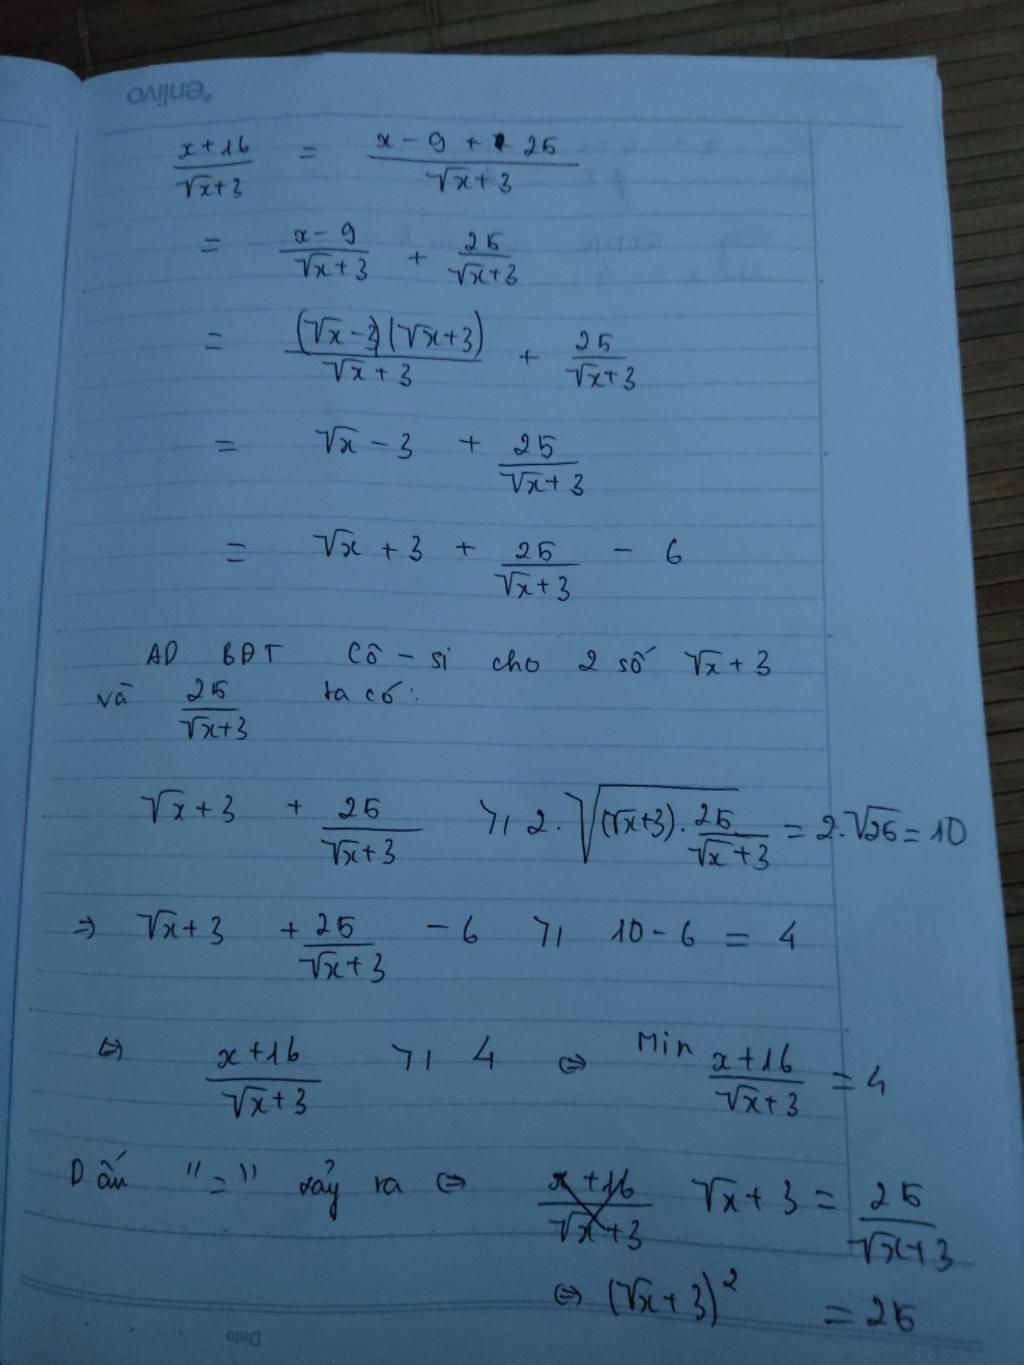 enlivo
x+16/√x+3 = x-9+25/√x+3
= x-9/√x+3 + 25/√x+3
= (√x-3)(√x+3)/√x+3 + 25/√x+3
= √x-3 + 25/√x+3
= √x+3 + 25/√x+3 - 6
AD BĐT Cô-si cho 2 số √x+3
và 25/√x+3 ta có:
√x+3 + 25/√x+3 ≥ 2.√(√x+3).25/√x+3 = 2.√25 = 10
⇒ √x+3 + 25/√x+3 - 6 ≥ 10-6 = 4
⇔ x+16/√x+3 ≥ 4 ⇔ Min x+16/√x+3 = 4
Dấu "=" xảy ra ⇔ x+16/√x+3 √x+3 = 25/√x+3
⇔ (√x+3)² = 25
Date